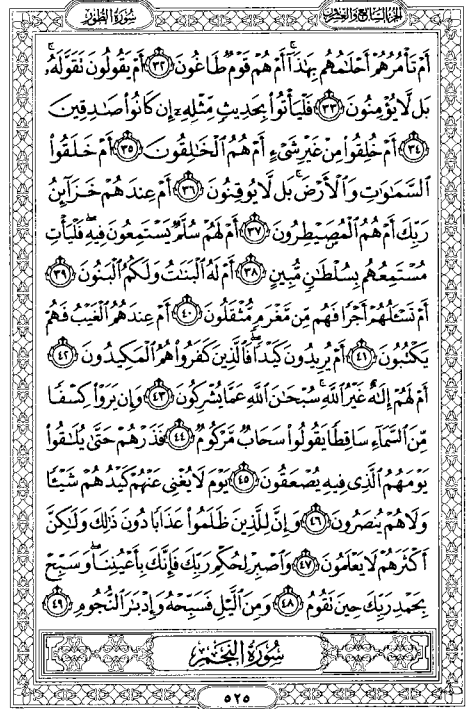 سورة الطور
الجزء السابع والعشرون
أَمْ تَأْمُرُهُمْ أَحْلَـٰمُهُم بِهَـٰذَآ ۚ أَمْ هُمْ قَوْمٌ طَاغُونَ ٣٢ أَمْ يَقُولُونَ تَقَوَّلَهُۥ ۚ
بَل لَّا يُؤْمِنُونَ ٣٣ فَلْيَأْتُوا۟ بِحَدِيثٍ مِّثْلِهِۦٓ إِن كَانُوا۟ صَـٰدِقِينَ
٣٤ أَمْ خُلِقُوا۟ مِنْ غَيْرِ شَىْءٍ أَمْ هُمُ ٱلْخَـٰلِقُونَ ٣٥ أَمْ خَلَقُوا۟
ٱلسَّمَـٰوَٰتِ وَٱلْأَرْضَ ۚ بَل لَّا يُوقِنُونَ ٣٦ أَمْ عِندَهُمْ خَزَآئِنُ
رَبِّكَ أَمْ هُمُ ٱلْمُصَۣيْطِرُونَ ٣٧ أَمْ لَهُمْ سُلَّمٌ يَسْتَمِعُونَ فِيهِ ۖ فَلْيَأْتِ
مُسْتَمِعُهُم بِسُلْطَـٰنٍ مُّبِينٍ ٣٨ أَمْ لَهُ ٱلْبَنَـٰتُ وَلَكُمُ ٱلْبَنُونَ ٣٩
أَمْ تَسْـَٔلُهُمْ أَجْرًا فَهُم مِّن مَّغْرَمٍ مُّثْقَلُونَ ٤٠ أَمْ عِندَهُمُ ٱلْغَيْبُ فَهُمْ
يَكْتُبُونَ ٤١ أَمْ يُرِيدُونَ كَيْدًا ۖ فَٱلَّذِينَ كَفَرُوا۟ هُمُ ٱلْمَكِيدُونَ ٤٢
أَمْ لَهُمْ إِلَـٰهٌ غَيْرُ ٱللَّهِ ۚ سُبْحَـٰنَ ٱللَّهِ عَمَّا يُشْرِكُونَ ٤٣ وَإِن يَرَوْا۟ كِسْفًا
مِّنَ ٱلسَّمَآءِ سَاقِطًا يَقُولُوا۟ سَحَابٌ مَّرْكُومٌ ٤٤ فَذَرْهُمْ حَتَّىٰ يُلَـٰقُوا۟
يَوْمَهُمُ ٱلَّذِى فِيهِ يُصْعَقُونَ ٤٥ يَوْمَ لَا يُغْنِى عَنْهُمْ كَيْدُهُمْ شَيْـًٔا
وَلَا هُمْ يُنصَرُونَ ٤٦ وَإِنَّ لِلَّذِينَ ظَلَمُوا۟ عَذَابًا دُونَ ذَٰلِكَ وَلَـٰكِنَّ
أَكْثَرَهُمْ لَا يَعْلَمُونَ ٤٧ وَٱصْبِرْ لِحُكْمِ رَبِّكَ فَإِنَّكَ بِأَعْيُنِنَا ۖ وَسَبِّحْ
بِحَمْدِ رَبِّكَ حِينَ تَقُومُ ٤٨ وَمِنَ ٱلَّيْلِ فَسَبِّحْهُ وَإِدْبَـٰرَ ٱلنُّجُومِ ٤٩
سُورَةُ النَّجْمِ
٥٢٥